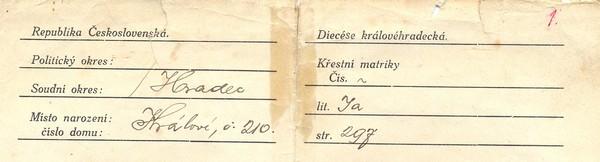 1.
Republika Československá.
Politický okres:
Soudní okres: Hradec
Místo narození: Králové, č. 210.
číslo domu:
Diecése králověhradecká.
Křestní matriky
Čís. ~
lit. Ia
str. 297